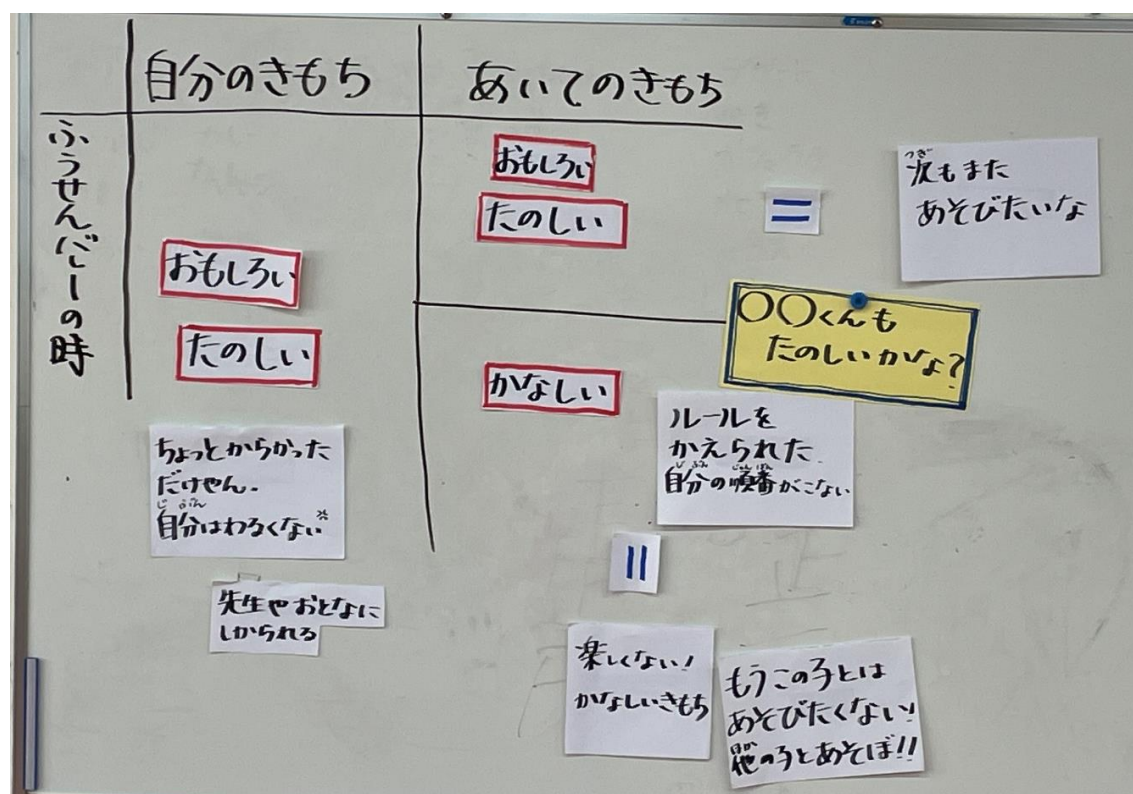 自分のきもち
あいてのきもち
ふうせんバレーの時
おもしろい
たのしい
おもしろい
たのしい
＝
つぎ
次もまた
あそびたいな
〇〇くんも
たのしいかな?
かなしい
ルールを
かえられた
じぶん じゅんばん
自分の順番がこない
ちょっとからかった
だけやん.
じぶん
自分はわるくない
先生やおとなに
しかられる
||
楽しくない!
かなしいきもち
もうこの子とは
あそびたくない!
ほか
他の子とあそぼ!!